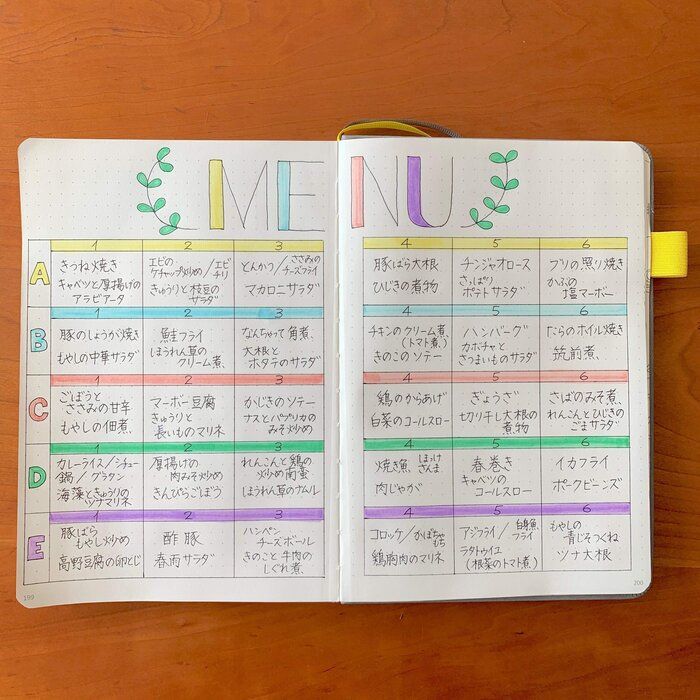 MENU
1 2 3 4 5 6
A
きつね焼き
キャベツと厚揚げの
アラビアータ
エビの
ケチャップ炒め/エビチリ
きゅうりと枝豆の
サラダ
とんかつ/ささみの
チーズフライ
マカロニサラダ
豚ばら大根
ひじきの煮物
チンジャオロース
さっぱり
ポテトサラダ
ブリの照り焼き
かぶの
塩マーボー
B
1 2 3 4 5 6
豚のしょうが焼き
もやしの中華サラダ
鮭フライ
ほうれん草の
クリーム煮
なんちゃって角煮
大根と
ホタテのサラダ
チキンのクリーム煮
(トマト煮)
きのこのソテー
ハンバーグ
カボチャと
さつまいものサラダ
たらのホイル焼き
筑前煮
C
1 2 3 4 5 6
ごぼうと
ささみの甘辛
もやしの佃煮
マーボー豆腐
きゅうりと
長いものマリネ
かじきのソテー
ナスとパプリカの
みそ炒め
鶏のからあげ
白菜のコールスロー
ぎょうざ
切り干し大根の
煮物
さばのみそ煮
れんこんとひじきの
ごまサラダ
D
1 2 3 4 5 6
カレーライス/シチュー
鍋/グラタン
海藻ときゅうりの
ツナマリネ
厚揚げの
肉みそ炒め
きんぴらごぼう
れんこんと鶏の
炒め南蛮
ほうれん草のナムル
焼き魚 ほっけ
さんま
肉じゃが
春巻き
キャベツの
コールスロー
イカフライ
ポークビーンズ
E
1 2 3 4 5 6
豚ばら
もやし炒め
高野豆腐の卵とじ
酢豚
春雨サラダ
ハンペン
チーズボール
きのこと牛肉の
しぐれ煮
コロッケ/かぼちゃ
もち
鶏胸肉のマリネ
アジフライ/白身魚
フライ
ラタトゥイユ
(根菜のトマト煮)
もやしの
青じそつくね
ツナ大根
199
200